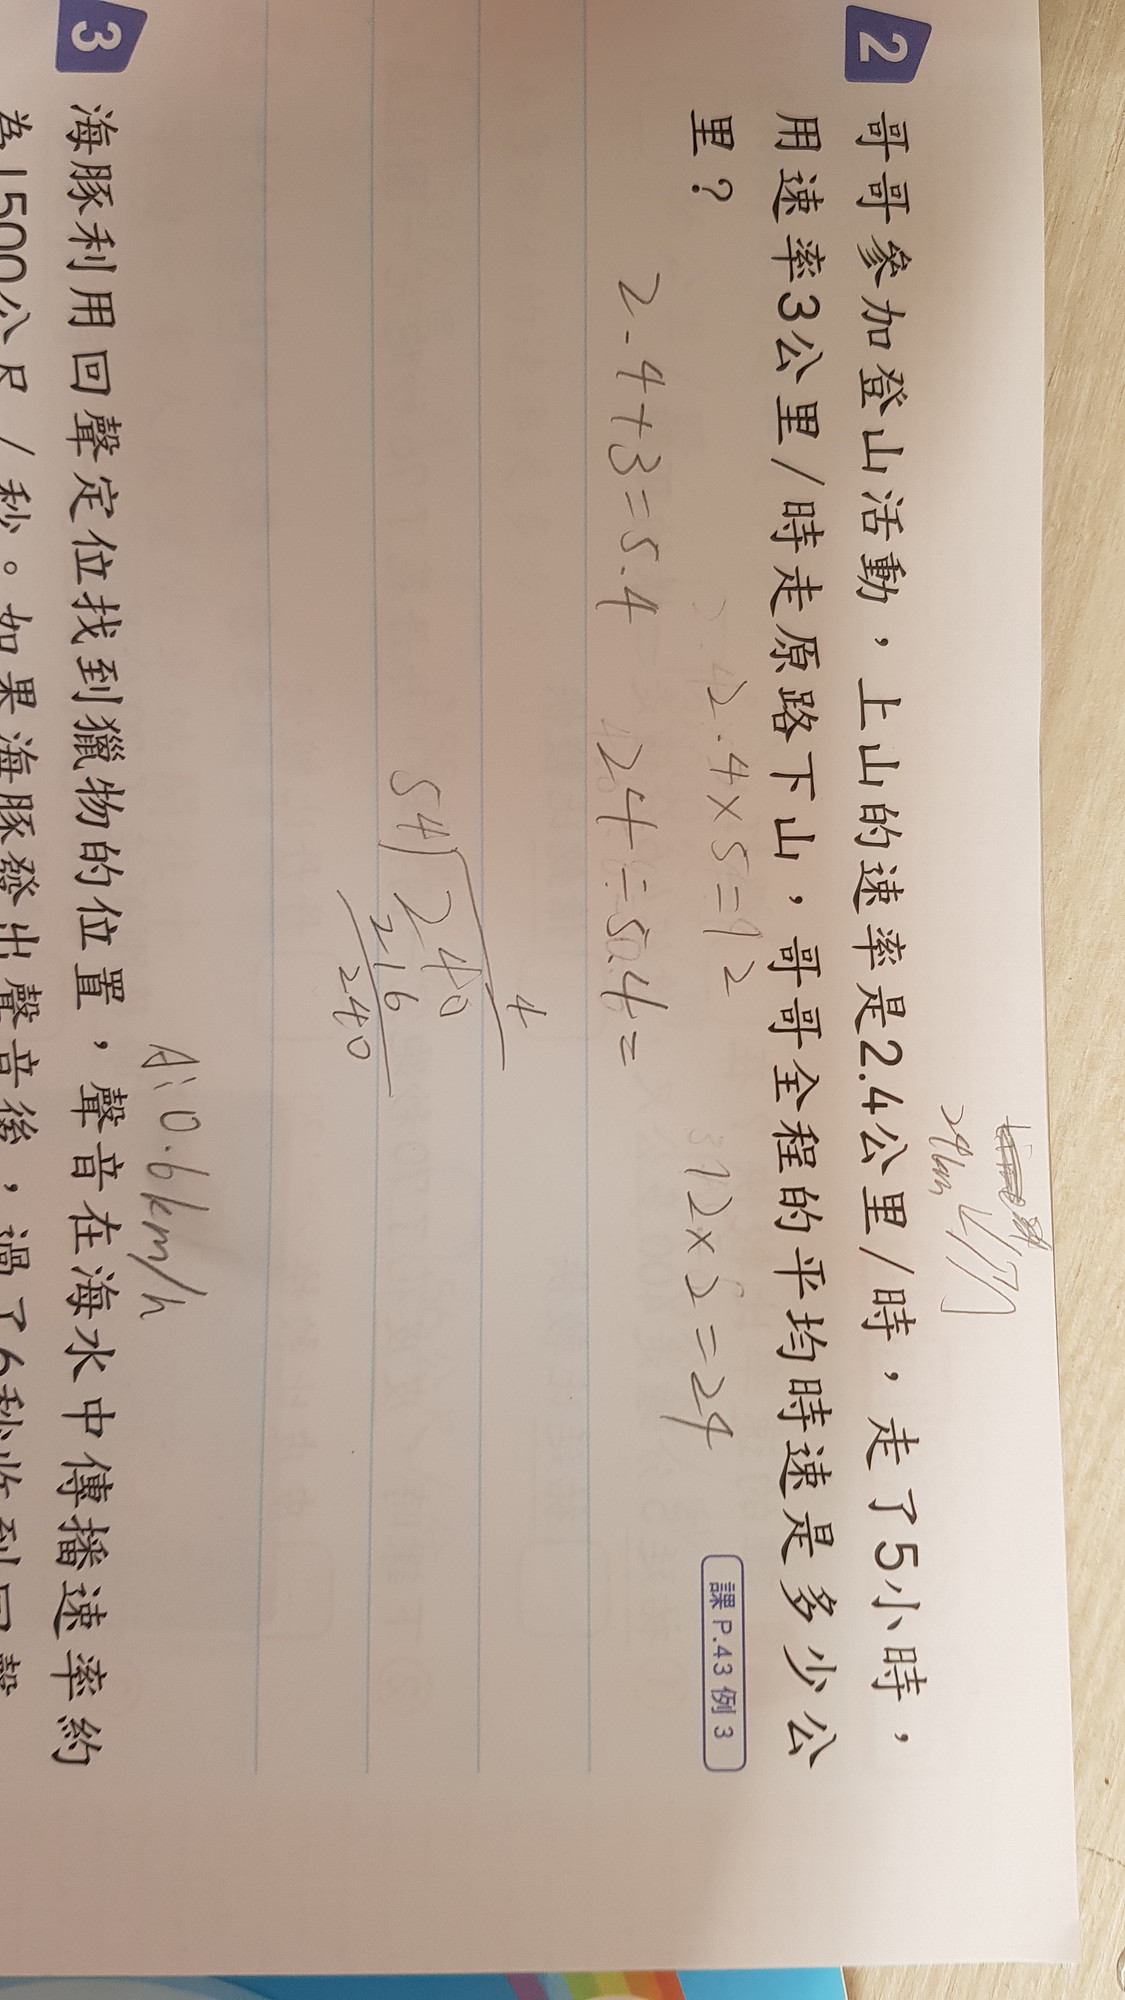 2
哥哥參加登山活動，上山的速率是2.4公里/時，走了5小時，
用速率3公里/時走原路下山，哥哥全程的平均時速是多少公
里？
課 P.43 例 3
2.4×5=12
12×2=24
2.4+3=5.4
24÷5.4=
4
54)240
216
240
A:0.6km/h
3
海豚利用回聲定位找到獵物的位置，聲音在海水中傳播速率約
為1500公尺/秒。如果海豚發出聲音後，過了6秒收到回聲